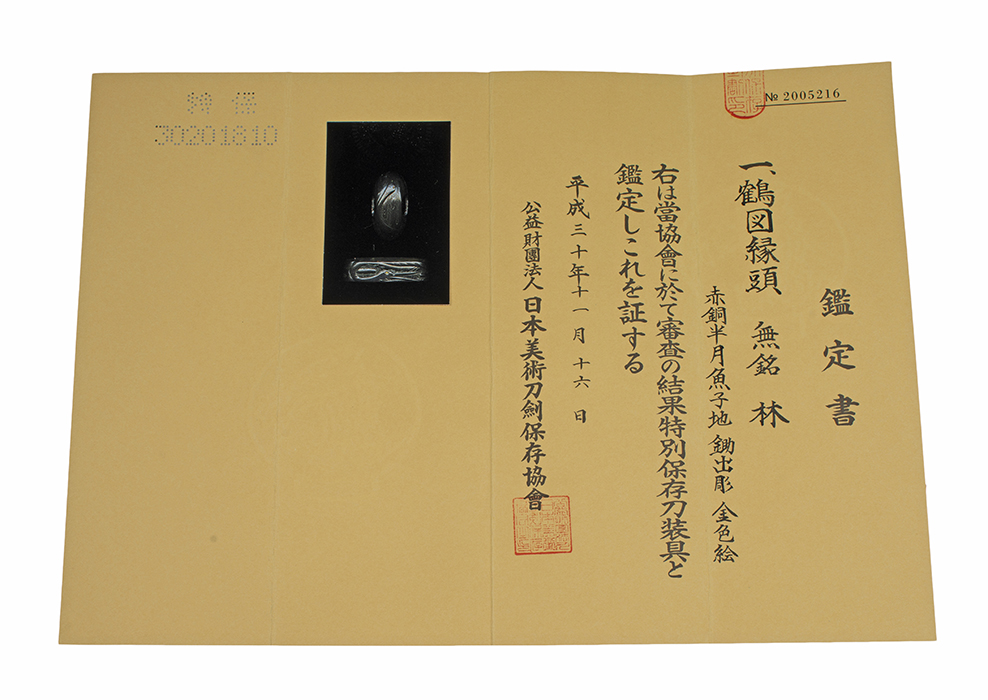 № 2005216
鑑定書
一、鶴図縁頭 無銘 林
赤銅半月魚子地 鋤出彫 金色絵
右は當協會に於て審査の結果特別保存刀装具と
鑑定しこれを証する
平成三十年十一月十六日
公益財團法人 日本美術刀劍保存協會
30201810